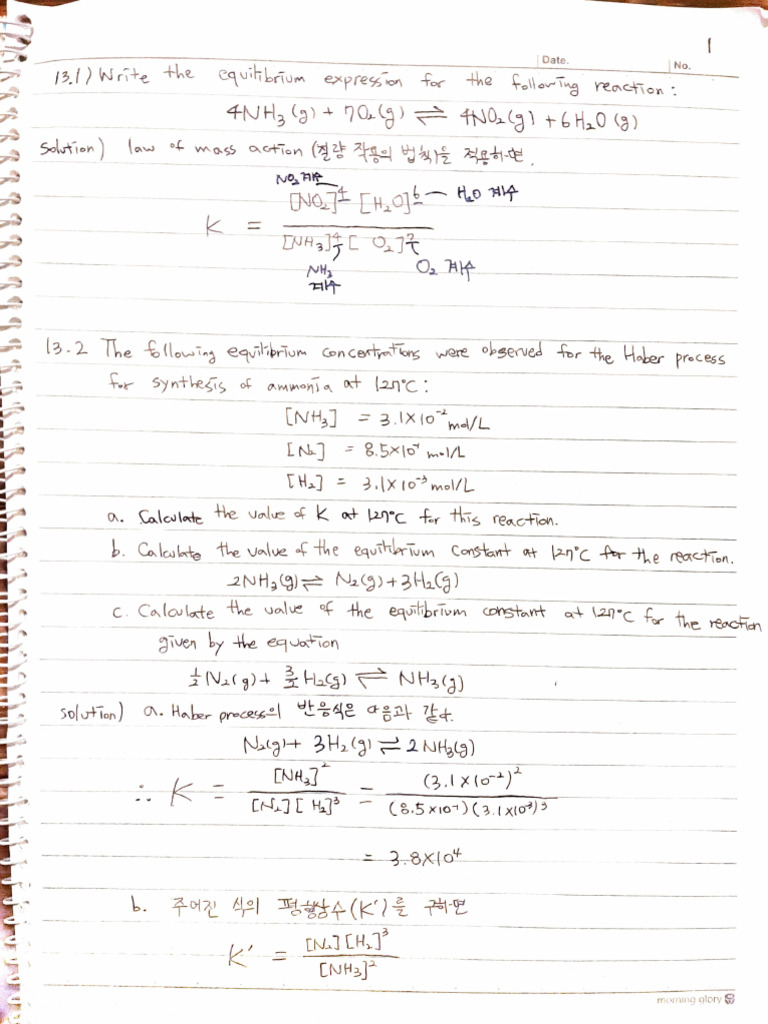 1
Date.
No.
13.1) Write the equilibrium expression for the following reaction :
4NH₃(g) + 7O₂(g) ⇌ 4NO₂(g) + 6H₂O(g)
Solution) law of mass action (질량 작용의 법칙)을 적용하면.
NO₂ 계수
[NO₂]⁴ [H₂O]⁶ — H₂O 계수
K =
[NH₃]⁴ [O₂]⁷
NH₃ 계수 O₂ 계수
13.2 The following equilibrium concentrations were observed for the Haber process
for synthesis of ammonia at 127°C :
[NH₃] = 3.1×10⁻² mol/L
[N₂] = 8.5×10⁻¹ mol/L
[H₂] = 3.1×10⁻³ mol/L
a. Calculate the value of K at 127°C for this reaction.
b. Calculate the value of the equilibrium constant at 127°C for the reaction.
2NH₃(g) ⇌ N₂(g) + 3H₂(g)
c. Calculate the value of the equilibrium constant at 127°C for the reaction
given by the equation
½N₂(g) + 3/2 H₂(g) ⇌ NH₃(g)
solution) a. Haber process의 반응식은 다음과 같다.
N₂(g) + 3H₂(g) ⇌ 2NH₃(g)
∴ K = [NH₃]² / [N₂][H₂]³ = (3.1×10⁻²)² / (8.5×10⁻¹)(3.1×10⁻³)³
= 3.8×10⁴
b. 주어진 식의 평형상수(K')를 구하면
K' = [N₂][H₂]³ / [NH₃]²
morning glory